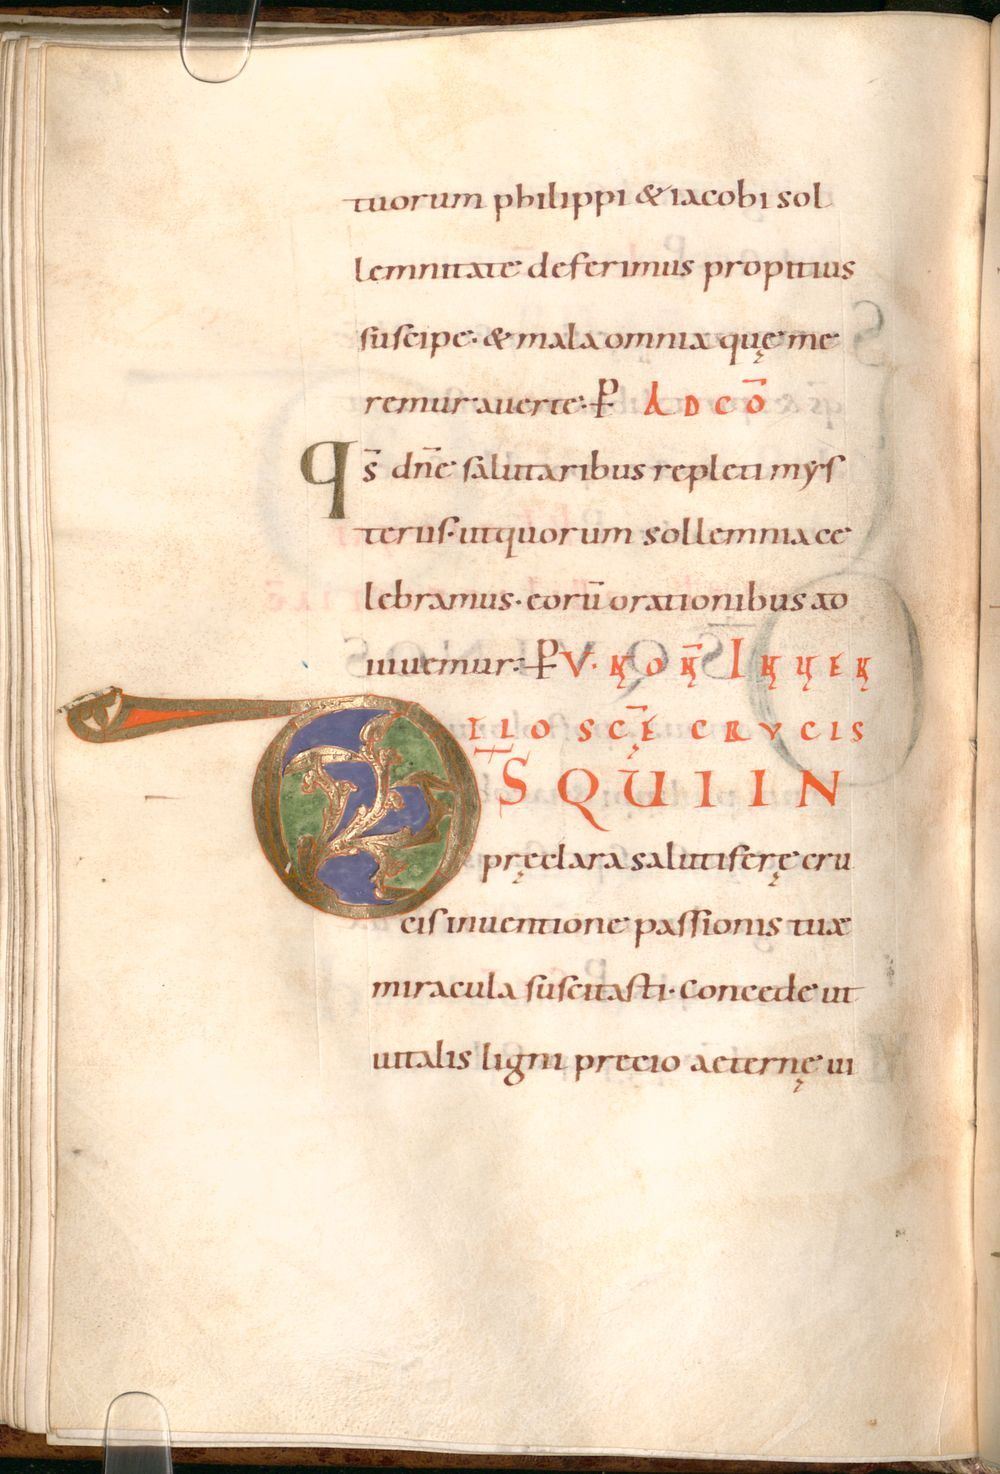 tuorum philippi & iacobi sol
lemnitate deferimus propitius
suscipe· & mala omnia quę me
remur auerte: P AD CO̅
qs̅ dn̅e salutaribus repleti mys
teriis· ut quorum sollemnia ce
lebramus· eoru̅ orationibus ad
iuuemur: P V· NON̅ INUEN
TIO SC̅Ę CRUCIS
DS̅ QUI IN
pręclara salutiferę cru
cis inuentione passionis tuæ
miracula suscitasti· Concede ut
uitalis ligni precio aeternę ui